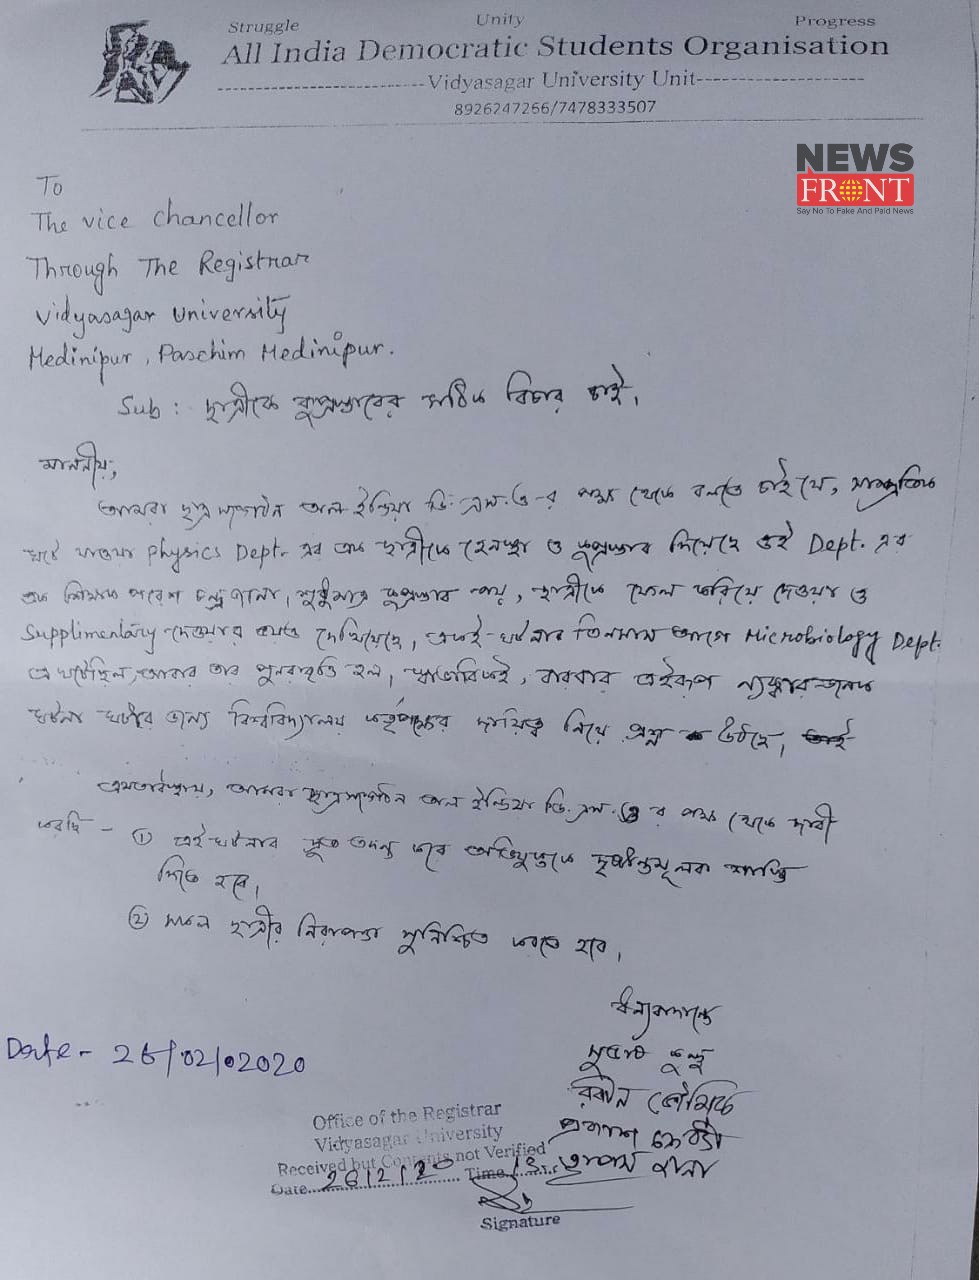 Struggle Unity Progress
All India Democratic Students Organisation
Vidyasagar University Unit
8926247266/7478333507
NEWS
FRONT
Say No To Fake And Paid News
To
The vice chancellor
Through The Registrar
Vidyasagar University
Medinipur, Paschim Medinipur.
Sub: ছাত্রীকে কুপ্রস্তাবের সঠিক বিচার চাই।
মাননীয়,
আমরা ছাত্র সংগঠন অল ইন্ডিয়া ডি.এস.ও-র পক্ষ থেকে বলতে চাই যে, সাম্প্রতিক
ঘটে যাওয়া Physics Dept. এর এক ছাত্রীকে হেনস্থা ও কুপ্রস্তাব দিয়েছে ওই Dept. এর
এক শিক্ষক পরেশ চন্দ্র জানা। শুধুমাত্র কুপ্রস্তাব নয়, ছাত্রীকে ফেল করিয়ে দেওয়া ও
Supplimentary দেওয়ার ভয়ও দেখিয়েছে, একই ঘটনার তিনমাস আগে Microbiology Dept.
এ ঘটেছিল, আবার তার পুনরাবৃত্তি হল। স্বাভাবিকই, বারবার এইরূপ ন্যক্কারজনক
ঘটনা ঘটার জন্য বিশ্ববিদ্যালয় কর্তৃপক্ষের দায়িত্ব নিয়ে প্রশ্ন উঠছে।
এমতাবস্থায়, আমরা ছাত্রসংগঠন অল ইন্ডিয়া ডি.এস.ও র পক্ষ থেকে দাবী
করছি - ① এই ঘটনার দ্রুত তদন্ত করে অভিযুক্তকে দৃষ্টান্তমূলক শাস্তি
দিতে হবে।
② সকল ছাত্রীর নিরাপত্তা সুনিশ্চিত করতে হবে।
ধন্যবাদান্তে
রবীন
তাপস
Date - 26/02/2020
Office of the Registrar
Vidyasagar University
Received but Contents not Verified
Date 26/2/20 Time
Signature